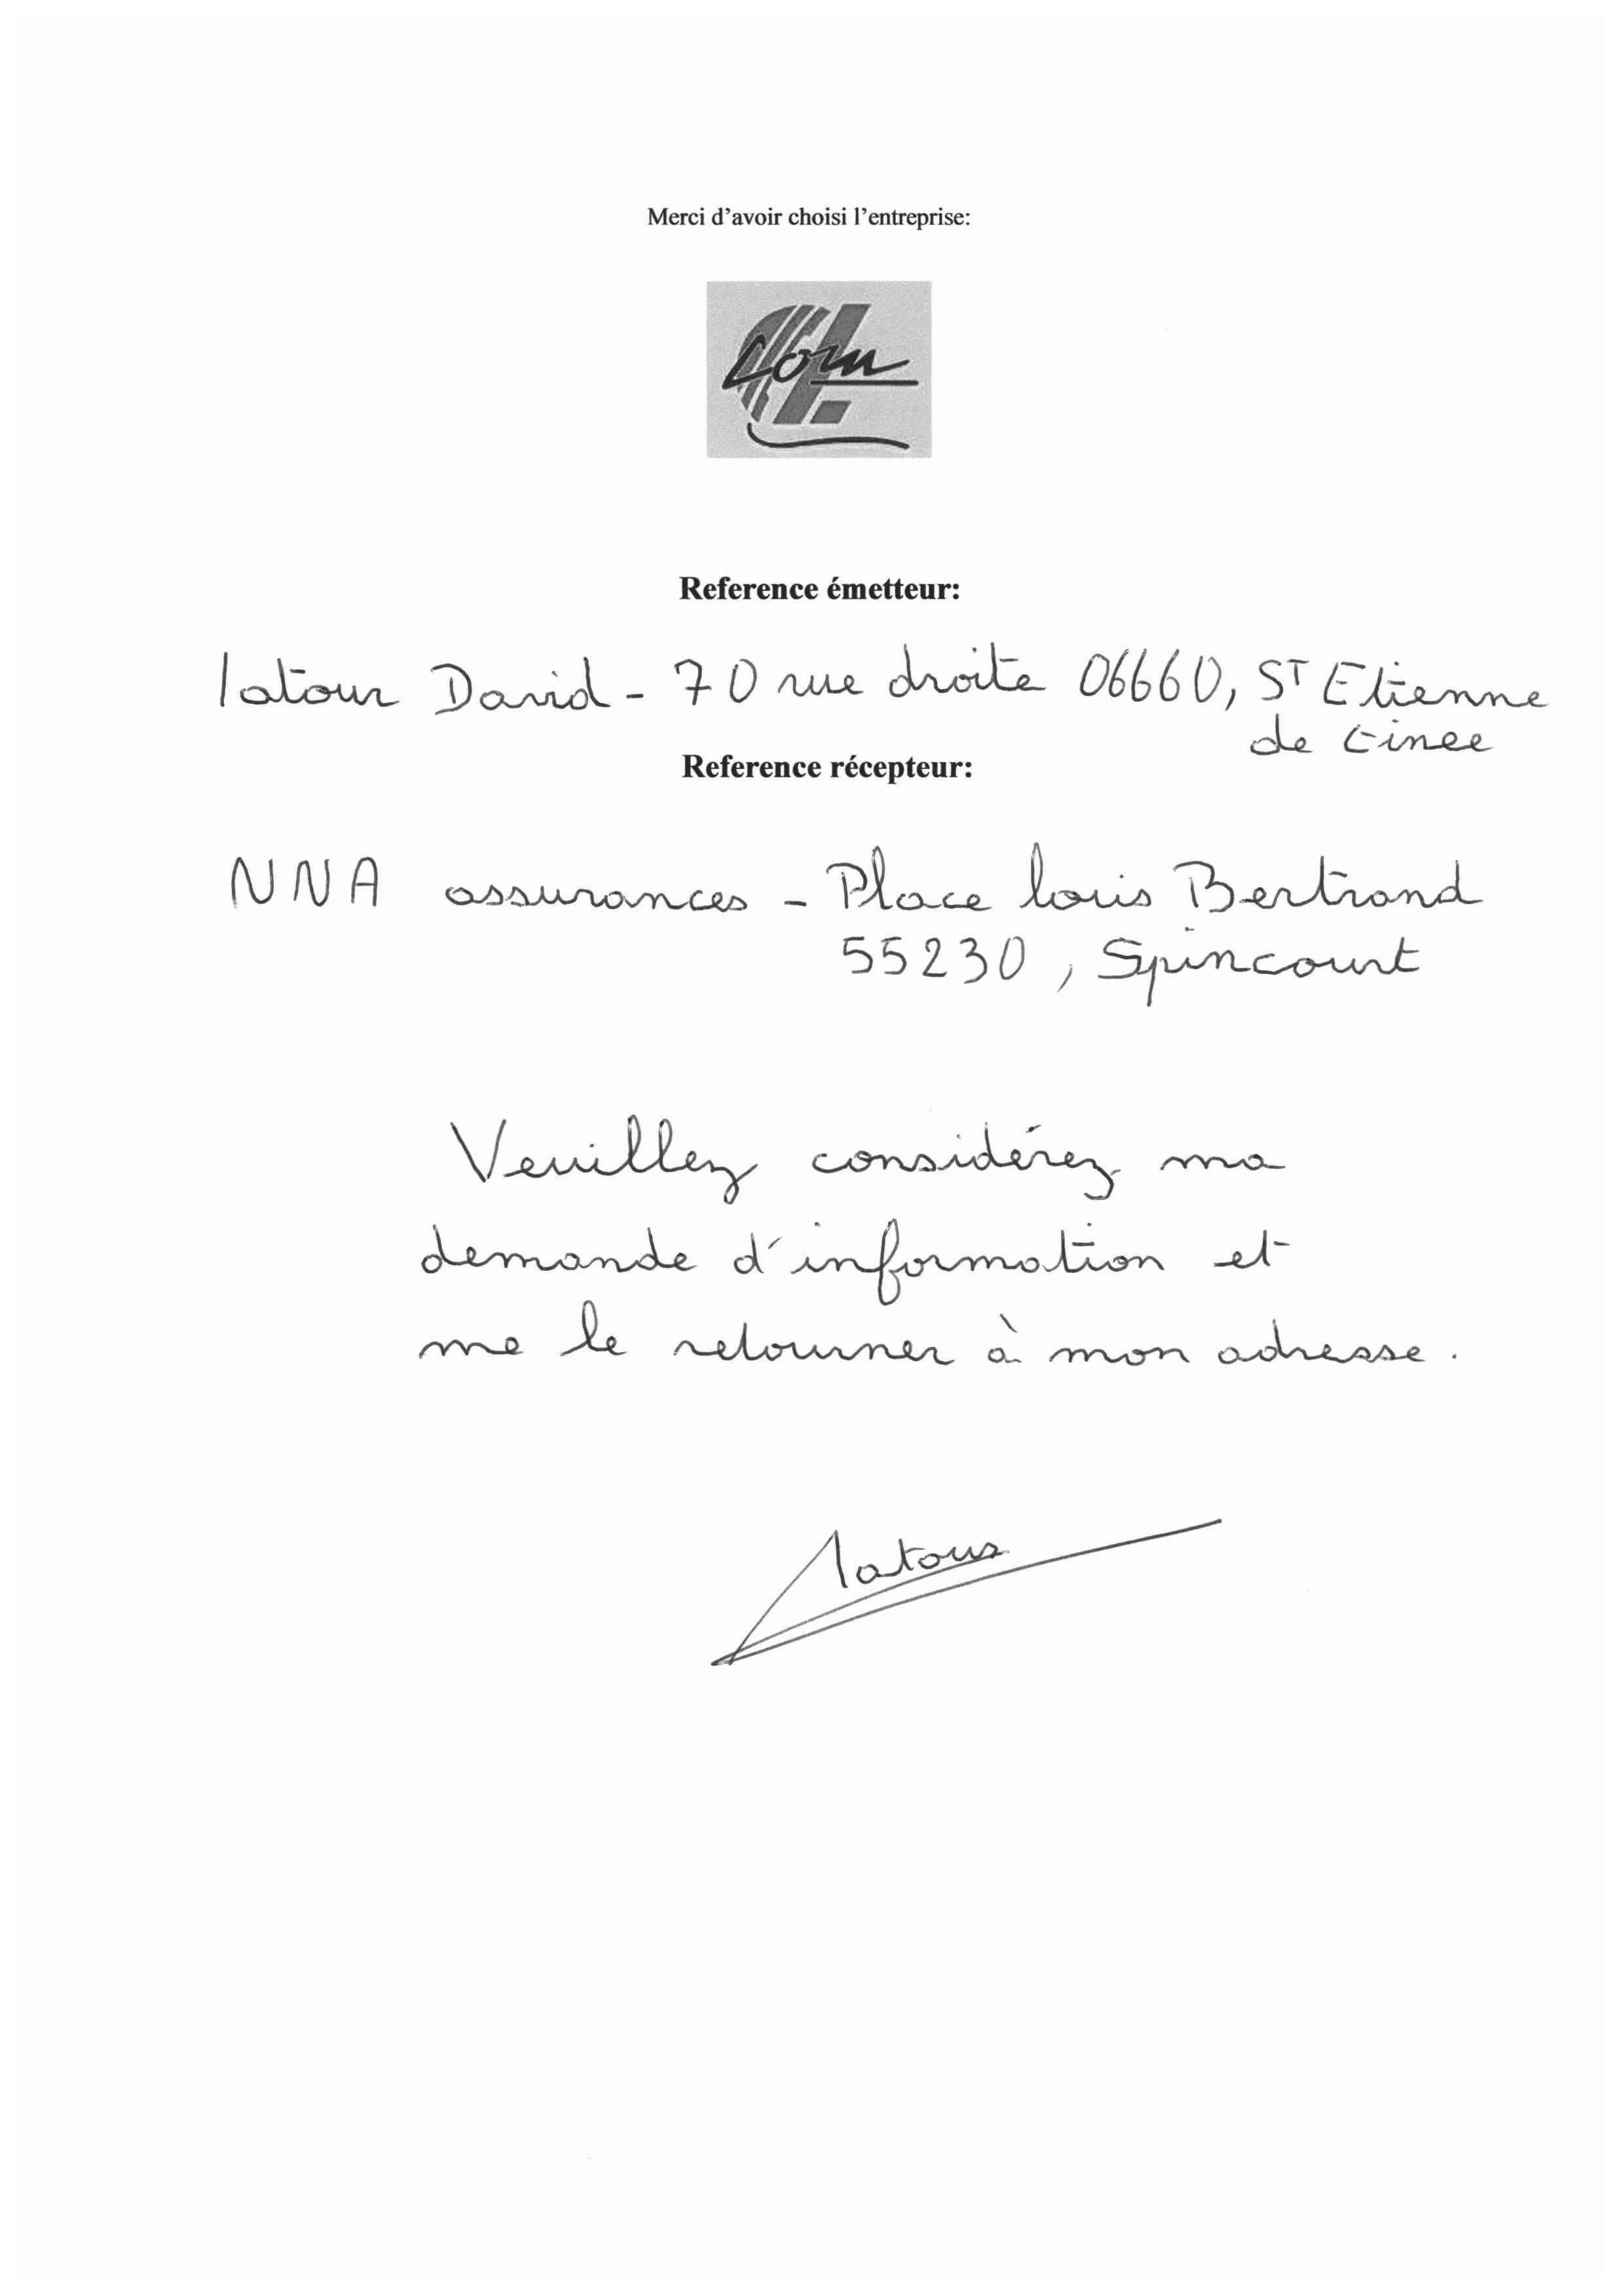 Merci d'avoir choisi l'entreprise:
Com
Reference émetteur:
latour David - 70 rue droite 06660, ST Etienne
de tinee
Reference récepteur:
NNA assurances - Place louis Bertrand
55230, Spincourt
Veuillez considérez ma
demande d'information et
me le retourner à mon adresse.
latour